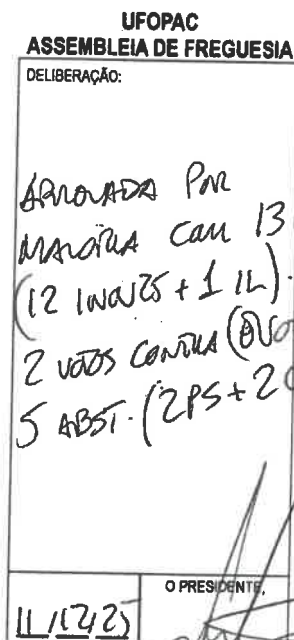 UFOPAC
ASSEMBLEIA DE FREGUESIA
DELIBERAÇÃO:
APROVADA POR
MAIORIA COM 13
(12 INOV25 + 1 IL).
2 VOTOS CONTRA (
5 ABST. (2PS + 2
O PRESIDENTE,
11/12/25